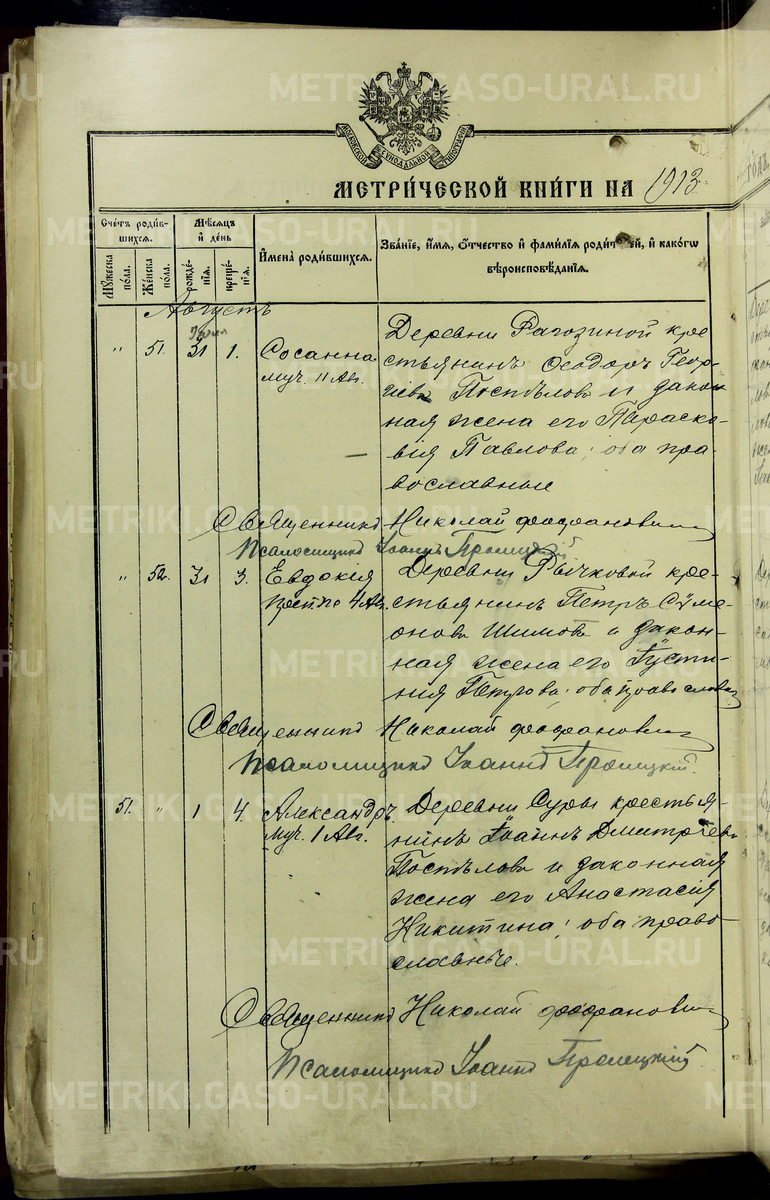 METRIKI.GASO-URAL.RU
МОСКОВСКОЙ СѴНОДАЛЬНОЙ ТИПОГРАФІИ
МЕТРИ́ЧЕСКОЙ КНИ́ГИ НА 1913.
Сче́тъ роди́в-шихся.
Мꙋ́жеска по́ла.
Же́нска по́ла.
Мѣ́сяцъ и҆ де́нь
рожде́-нїя.
креще́-нїя.
И҆мена̀ роди́вшихся.
Зва́нїе, и҆́мя, ѻ҆́тчество и҆ фами́лїя роди́телей, и҆ како́гѡ
вѣроисповѣ́данїя.
Августъ
Іюля
" 51. 31 1. Сосанна
муч. 11 Авг.
Деревни Рагозиной кре-
стьянинъ Ѳеодоръ Геор-
гіевъ Поспѣловъ и закон
ная жена его Параско-
вія Павлова; оба пра-
вославные
Священникъ Николай Феофановичъ
Псаломщикъ Іоаннъ
" 52. 31 3. Евдокія
4 Авг.
Деревни Рычковой кре-
стьянинъ Петръ Сѵме-
оновъ Шимовъ и закон-
ная жена его Іусти-
нія Петрова; оба православн
Священникъ Николай Феофановичъ
Псаломщикъ Іоаннъ
51. " 1 4. Александръ
муч. 1 Авг.
Деревни Суры крестья-
нинъ Іоаннъ Дмитріевъ
Поспѣловъ и законная
жена его Анастасія
Никитина; оба право-
славные.
Священникъ Николай Феофановичъ
Псаломщикъ Іоаннъ